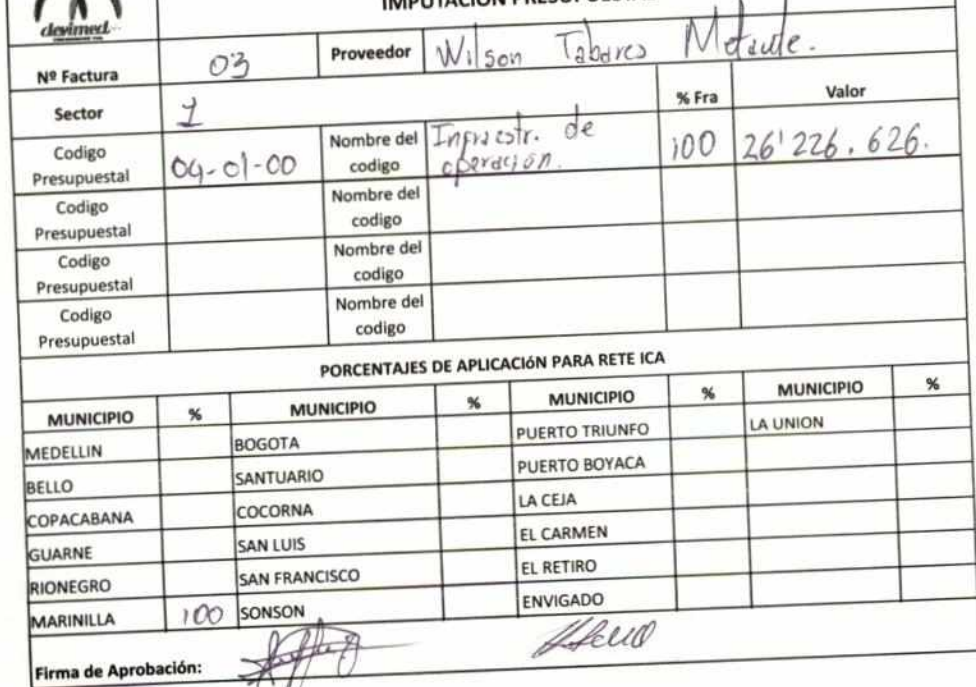 devimed
Nº Factura 03 Proveedor Wilson Tabares
Sector 1 % Fra Valor
Codigo Presupuestal 04-01-00 Nombre del codigo Infraestr. de operación. 100 26'226.626.
Codigo Presupuestal Nombre del codigo
Codigo Presupuestal Nombre del codigo
Codigo Presupuestal Nombre del codigo
PORCENTAJES DE APLICACIóN PARA RETE ICA
MUNICIPIO % MUNICIPIO % MUNICIPIO % MUNICIPIO %
MEDELLIN BOGOTA PUERTO TRIUNFO LA UNION
BELLO SANTUARIO PUERTO BOYACA
COPACABANA COCORNA LA CEJA
GUARNE SAN LUIS EL CARMEN
RIONEGRO SAN FRANCISCO EL RETIRO
MARINILLA 100 SONSON ENVIGADO
Firma de Aprobación: